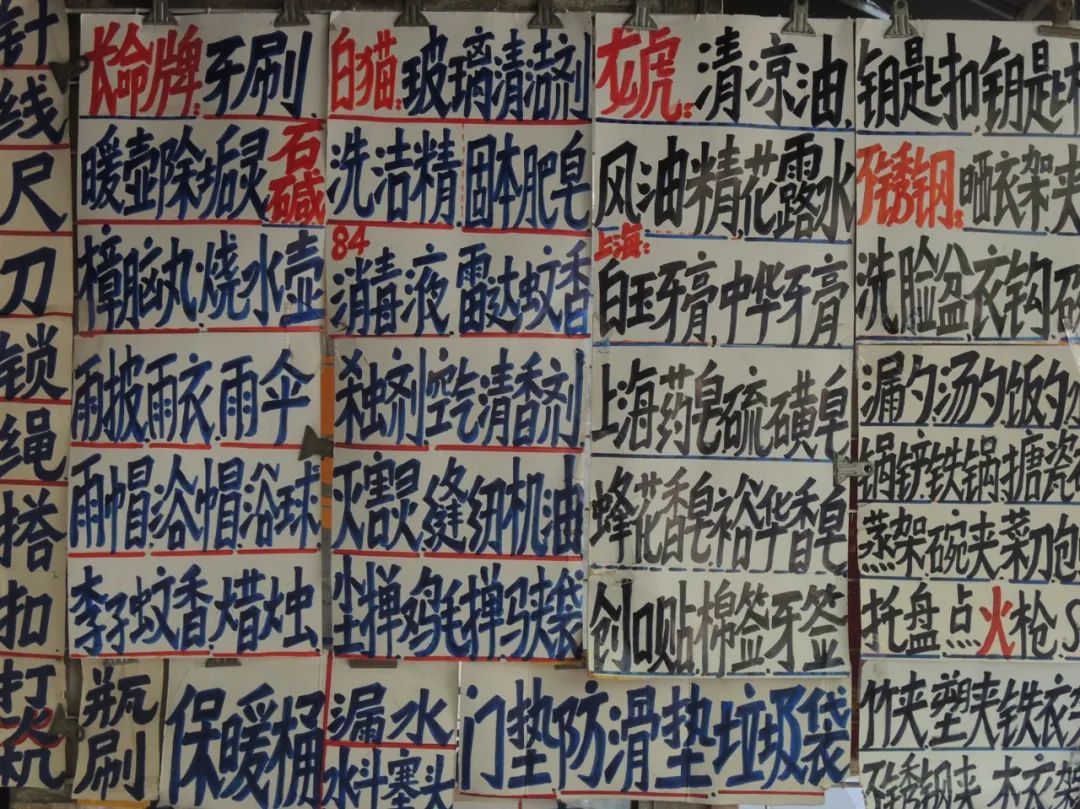 针
线
尺
刀
锁
绳
搭
扣
打火机
长命牌:牙刷
暖壶除垢灵 石碱
樟脑丸.烧水壶
雨披.雨衣.雨伞
雨帽.浴帽.浴球
李子蚊香.焟烛
白猫:玻璃清洁剂
洗洁精.固本肥皂
84
消毒液.雷达蚊香
杀虫剂.空气清香剂
灭害灵.缝纫机油
尘掸.鸡毛掸.马夹袋
龙虎:清凉油.
风油精.花露水
上海:
白玉牙膏.中华牙膏
上海药皂.硫磺皂
蜂花香皂.裕华香皂
创口贴.棉签.牙签
钥匙扣.钥匙
不锈钢:晒衣架.夹
洗脸盆.衣钩
漏勺.汤勺.饭勺
锅铲.铁锅.搪瓷
蒸架.碗夹.菜刀
托盘.点火枪.S
竹夹.塑夹.铁衣
不锈钢夹.木衣架
瓶刷
保暖桶
漏水
水斗塞头
门垫.防滑垫.垃圾袋